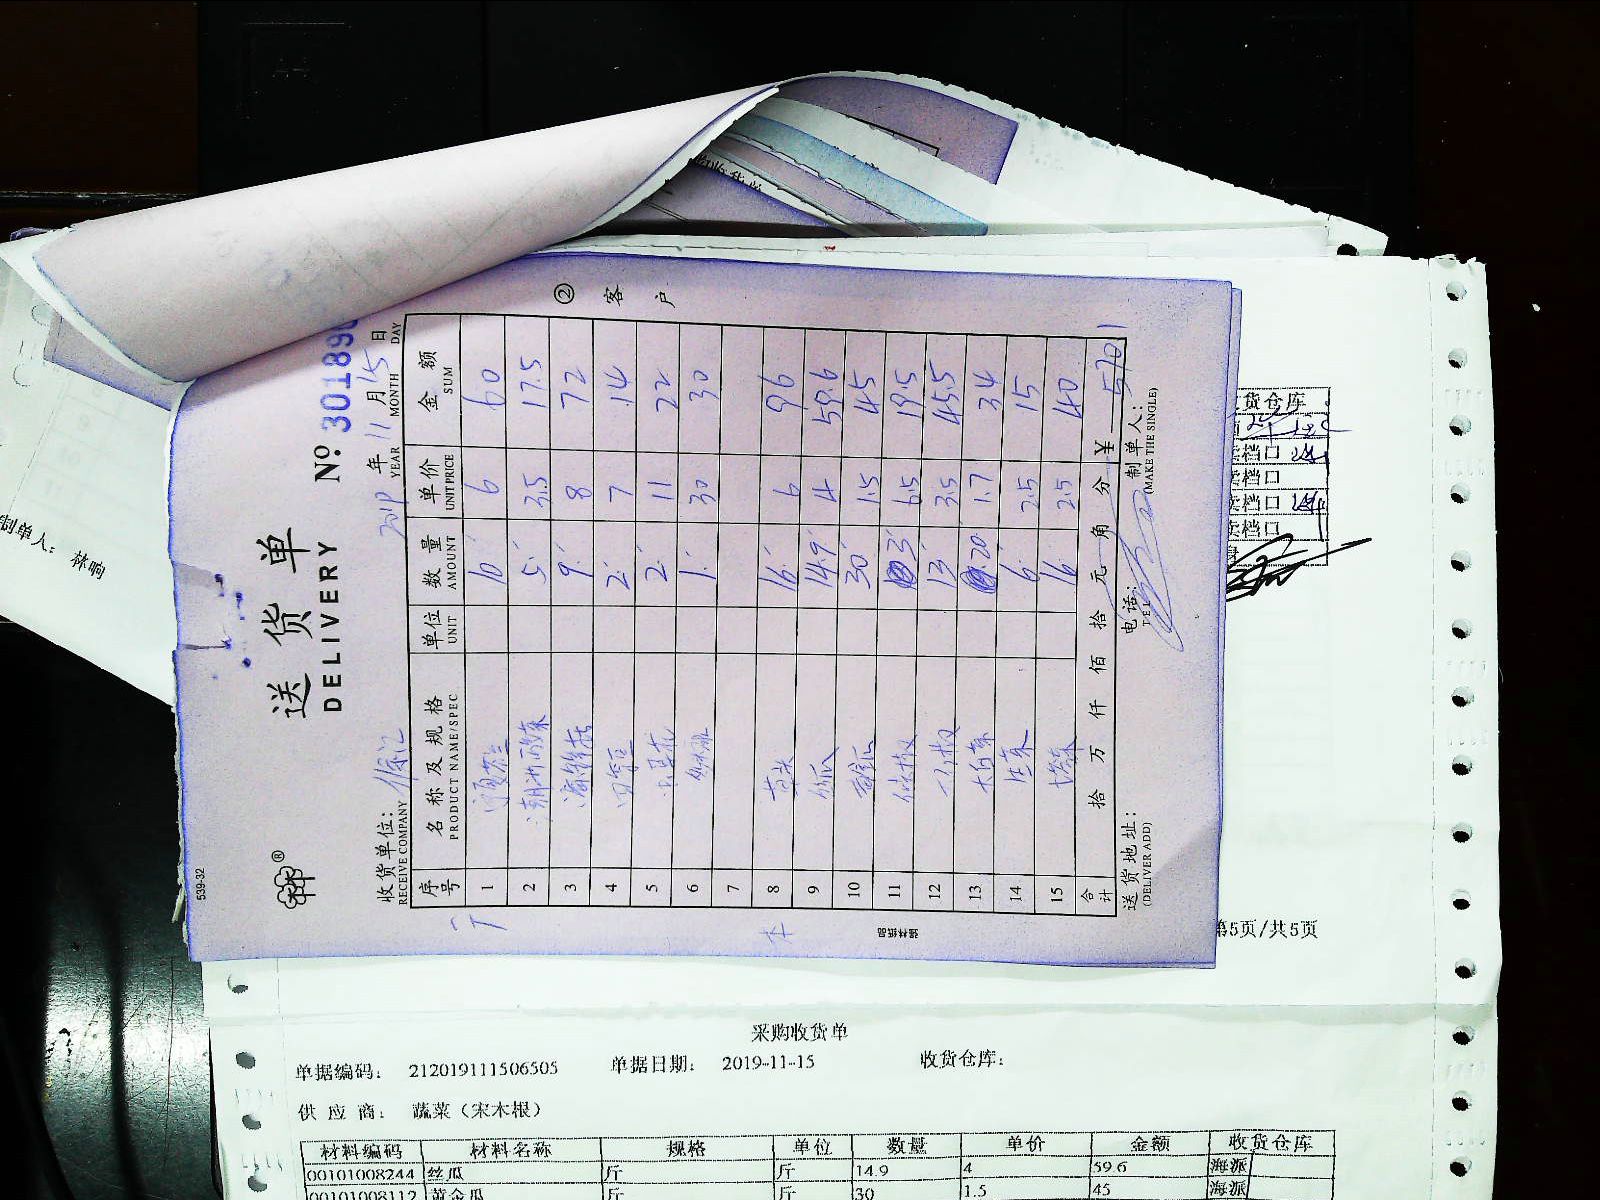 539-32
送货单
DELIVERY
№ 301890
收货单位： 徐汇
RECEIVE COMPANY
2019 年 11 月 15 日
YEAR MONTH DAY
② 客户
序号 名称及规格 单位 数量 单价 金额
PRODUCT NAME/SPEC UNIT AMOUNT UNIT PRICE SUM
1 10 6 60
2 5 3.5 17.5
3 9 8 72
4 2 7 14
5 2 11 22
6 1 30 30
7
8 16 6 96
9 丝瓜 14.9 4 59.6
10 黄金瓜 30 1.5 45
11 3 6.5 19.5
12 13 3.5 45.5
13 大白菜 20 1.7 34
14 生菜 6 2.5 15
15 16 2.5 40
合计 拾 万 仟 佰 拾 元 角 分 ¥ 570.1
送货地址： 电话： 制单人：
(DELIVER ADD) TEL (MAKE THE SINGLE)
制单人： 林响
货仓库
档口
档口
档口
档口
第5页/共5页
采购收货单
单据编码： 212019111506505 单据日期： 2019-11-15 收货仓库：
供应商： 蔬菜（宋木根）
材料编码 材料名称 规格 单位 数量 单价 金额 收货仓库
00101008244 丝瓜 斤 斤 14.9 4 59.6 海派
00101008112 黄金瓜 斤 斤 30 1.5 45 海派